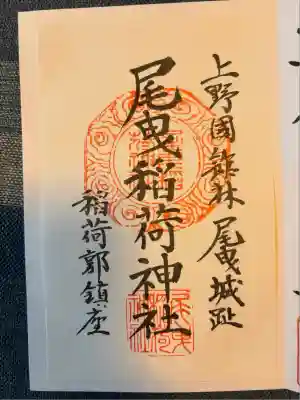 上野國舘林尾曳城趾
尾曳稲荷神社
稲荷郭鎮座